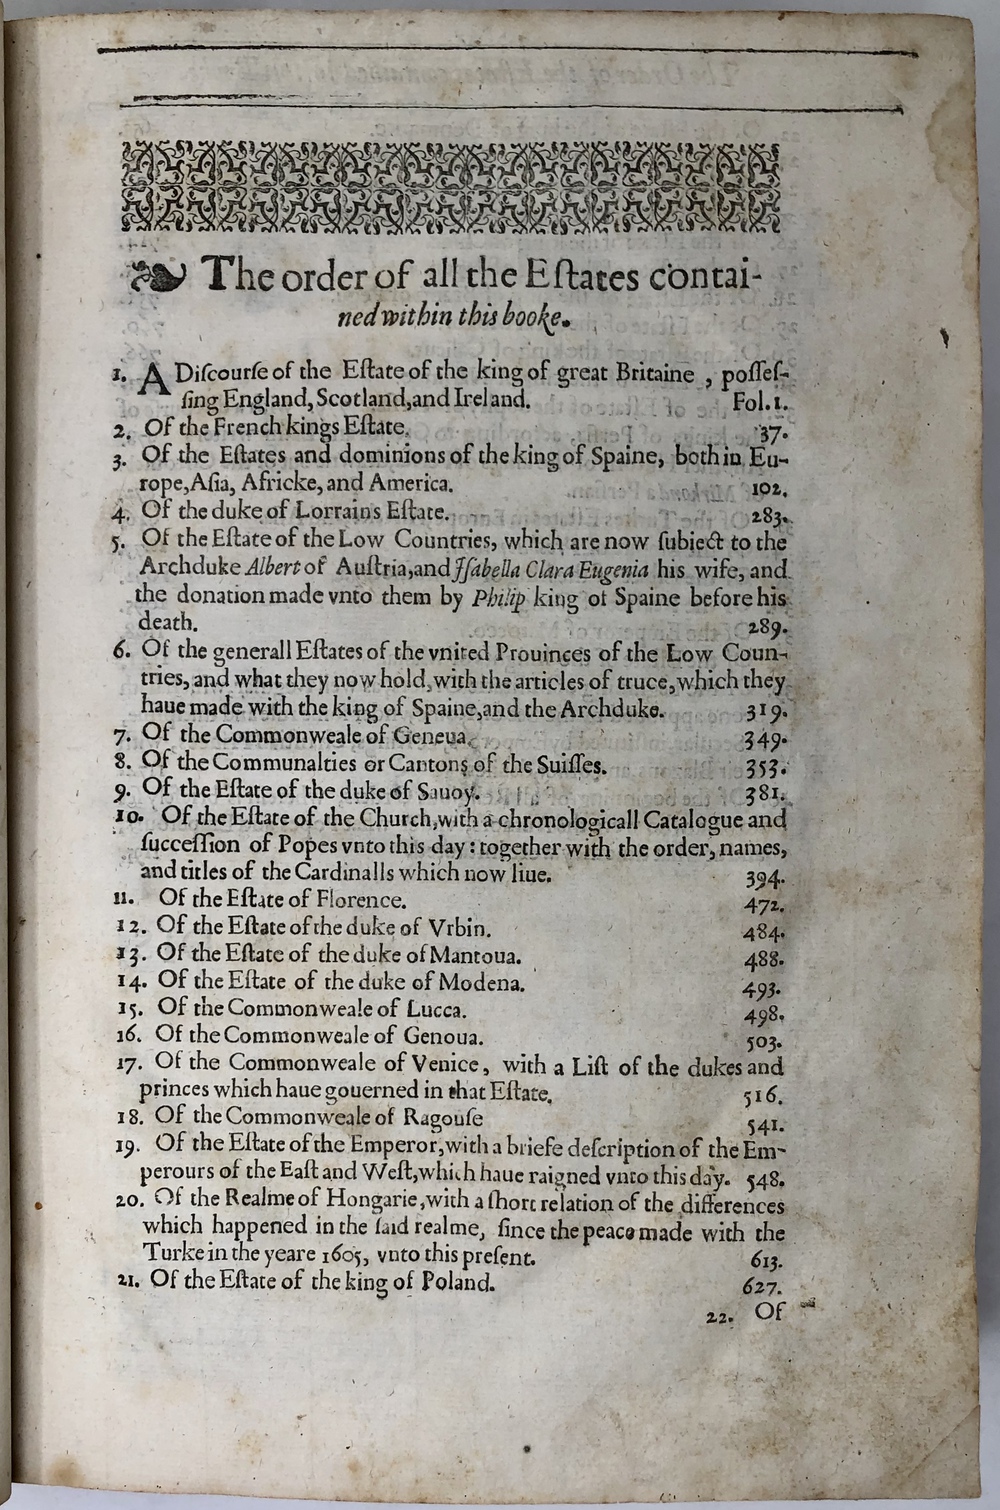 The order of all the Eſtates contai-
ned within this booke.
1. A Diſcourſe of the Eſtate of the king of great Britaine , poſſeſ-
ſing England, Scotland,and Ireland. Fol.1.
2. Of the French kings Eſtate. 37.
3. Of the Eſtates and dominions of the king of Spaine, both in Eu-
rope,Aſia, Africke, and America. 102.
4. Of the duke of Lorrains Eſtate. 283.
5. Of the Eſtate of the Low Countries, which are now ſubiect to the
Archduke Albert of Auſtria,and Iſabella Clara Eugenia his wife, and
the donation made vnto them by Philip king of Spaine before his
death. 289.
6. Of the generall Eſtates of the vnited Prouinces of the Low Coun-
tries, and what they now hold, with the articles of truce, which they
haue made with the king of Spaine,and the Archduke. 319.
7. Of the Commonweale of Geneua. 349.
8. Of the Communalties or Cantons of the Suiſſes. 353.
9. Of the Eſtate of the duke of Sauoy. 381.
10. Of the Eſtate of the Church,with a chronologicall Catalogue and
ſucceſſion of Popes vnto this day : together with the order, names,
and titles of the Cardinalls which now liue. 394.
11. Of the Eſtate of Florence. 472.
12. Of the Eſtate of the duke of Vrbin. 484.
13. Of the Eſtate of the duke of Mantoua. 488.
14. Of the Eſtate of the duke of Modena. 493.
15. Of the Commonweale of Lucca. 498.
16. Of the Commonweale of Genoua. 503.
17. Of the Commonweale of Venice, with a Liſt of the dukes and
princes which haue gouerned in that Eſtate. 516.
18. Of the Commonweale of Ragouſe 541.
19. Of the Eſtate of the Emperor,with a briefe deſcription of the Em-
perours of the Eaſt and Weſt,which haue raigned vnto this day. 548.
20. Of the Realme of Hongarie,with a ſhort relation of the differences
which happened in the ſaid realme, ſince the peace made with the
Turke in the yeare 1605, vnto this preſent. 613.
21. Of the Eſtate of the king of Poland. 627.
22. Of